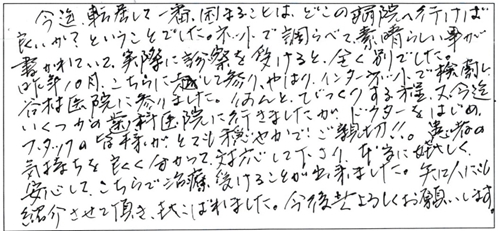 今迄転居して一番困まることは、どこの病院へ行けば
良いか？ということでした。ネットで調らべて、素晴らしい事が
書かれていて、実際に診察を受けると、全く別でした。
昨年10月、こちらに越して参り、やはり、インターネットで検索し、
谷村医院に参りました。なんと、びっくりする程、又今迄
いくつかの歯科医院に行きましたが、ドクターをはじめ、
スタッフの皆様がとても穏やかでご親切!!。患者の
気持ちを良く分かって、対応して下さり、本当に嬉しく、
安心して、こちらで治療受けることが出来ました。知人にも
紹介させて頂き、喜こばれました。今後共よろしくお願いします。